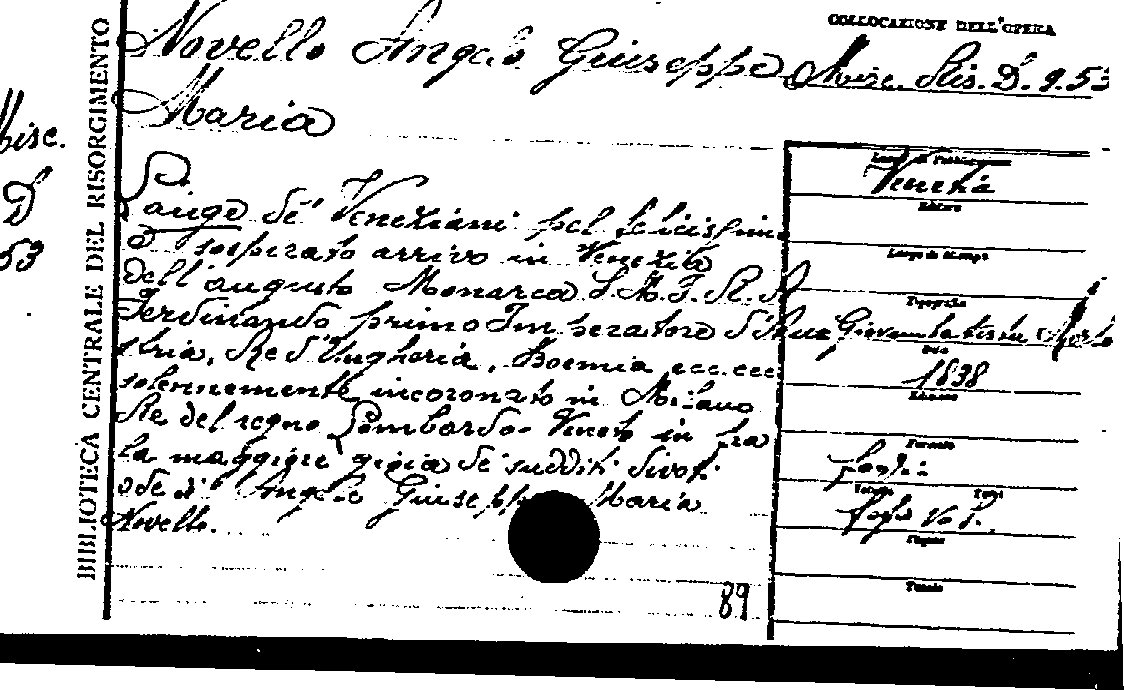 COLLOCAZIONE DELL'OPERA
Novello Angelo Giuseppe
Maria
Misc. Ris. D. 9.53
Misc.
D
53
BIBLIOTECA CENTRALE DEL RISORGIMENTO
de' Veneziani pel felicissimo
e sospirato arrivo in Venezia
dell'augusto Monarca S. M. I. R. A.
Ferdinando primo Imperatore d'Au
stria, Re d'Ungheria, Boemia ecc. ecc.
solennemente incoronato in Milano
Re del regno Lombardo-Veneto in fra
la maggiore gioia de' sudditi divoti
ode di Angelo Giuseppe Maria
Novello.
Luogo di Pubblicazione
Venezia
Editore
Luogo di stampa
Tipografia
Giovambatista
Data
1838
Edizione
Formato
foglio
Pagine
Tomale
89